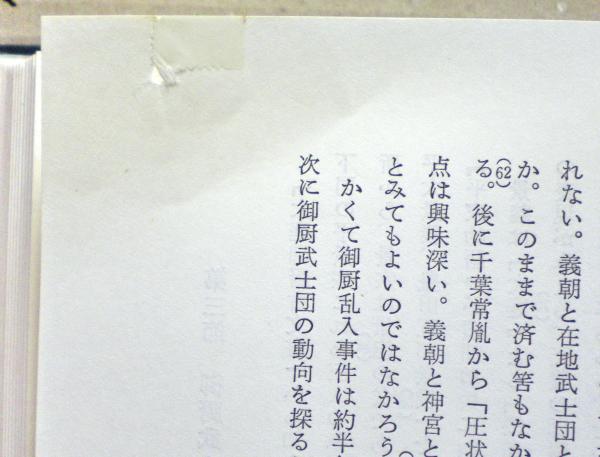 れない。義朝と在地武士団と
か。このままで済む筈もなか
(62)
る。後に千葉常胤から「圧状
点は興味深い。義朝と神宮と
とみてもよいのではなかろう
かくて御厨乱入事件は約半
次に御厨武士団の動向を探る